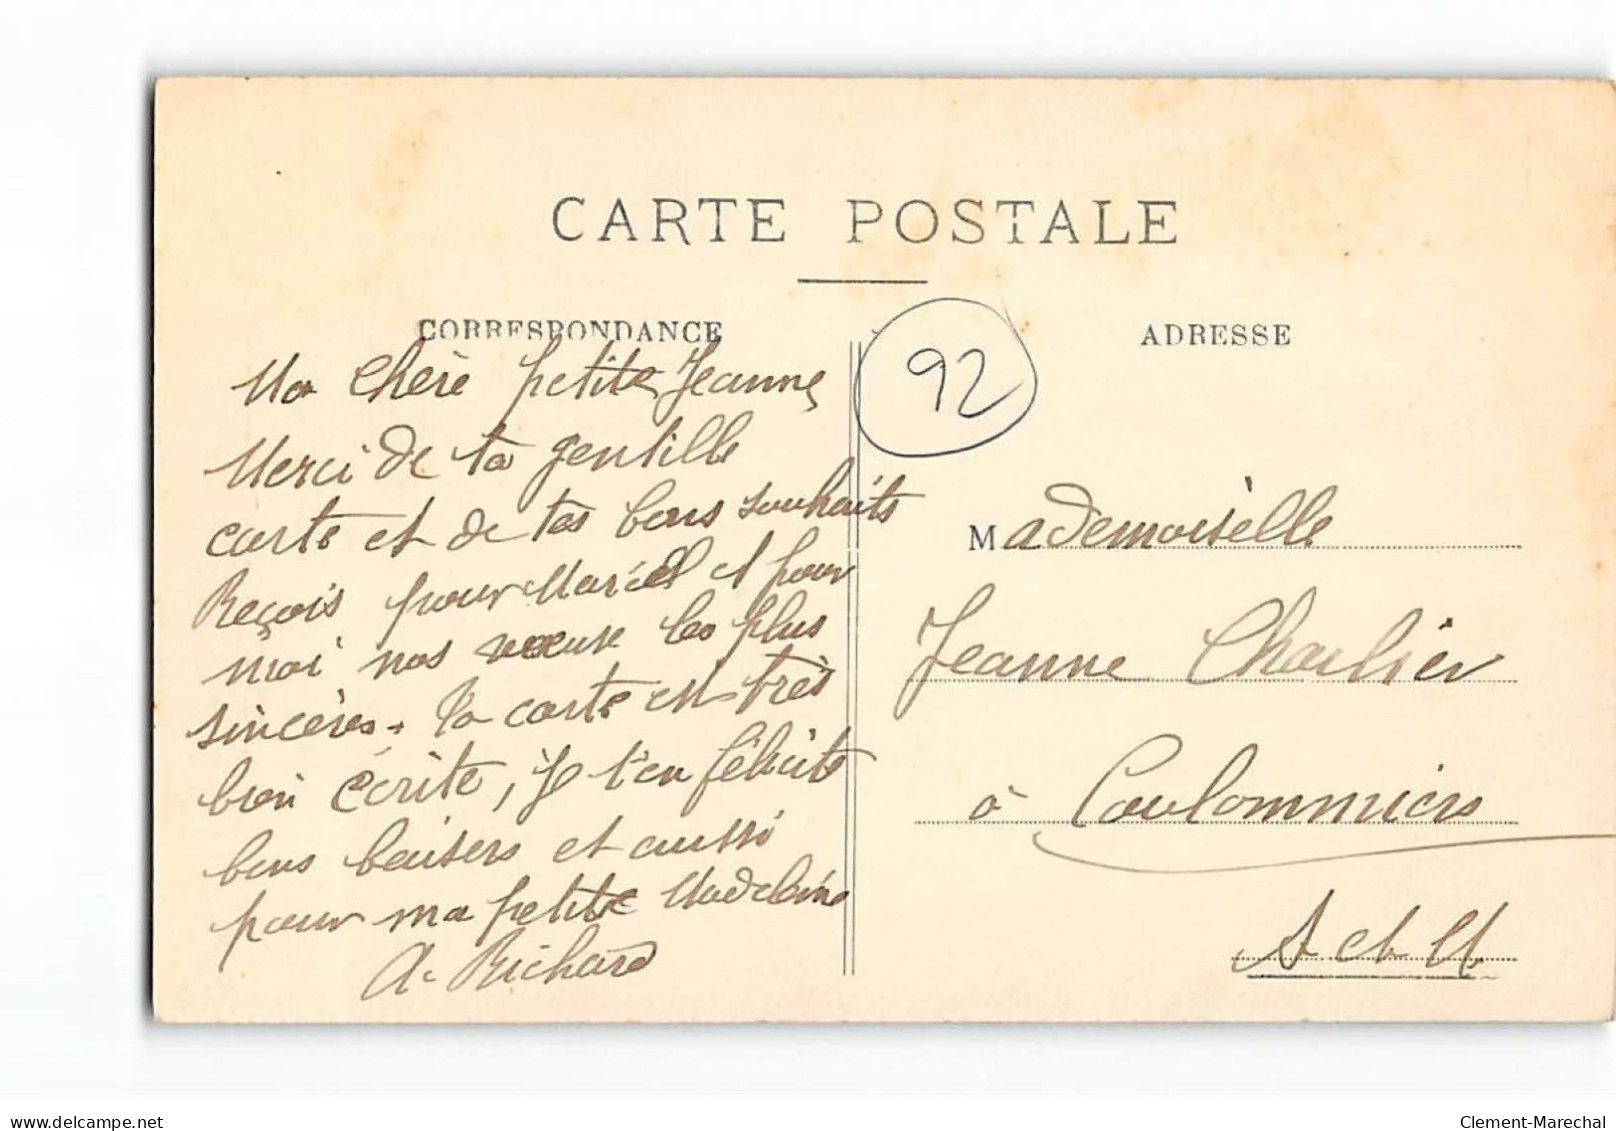 CARTE POSTALE
CORRESPONDANCE
Ma Chère petite Jeanne,
Merci de ta gentille
carte et de tes bons souhaits
Reçois pour Marcel et pour
moi nos vœux les plus
sincères. Ta carte est très
bien écrite, je t'en félicite
bons baisers et aussi
pour ma petite Madeleine
A. Richard
92
ADRESSE
Mademoiselle
Jeanne Charlier
à Coulommiers
S et M
delcampe.net
Clement-Marechal